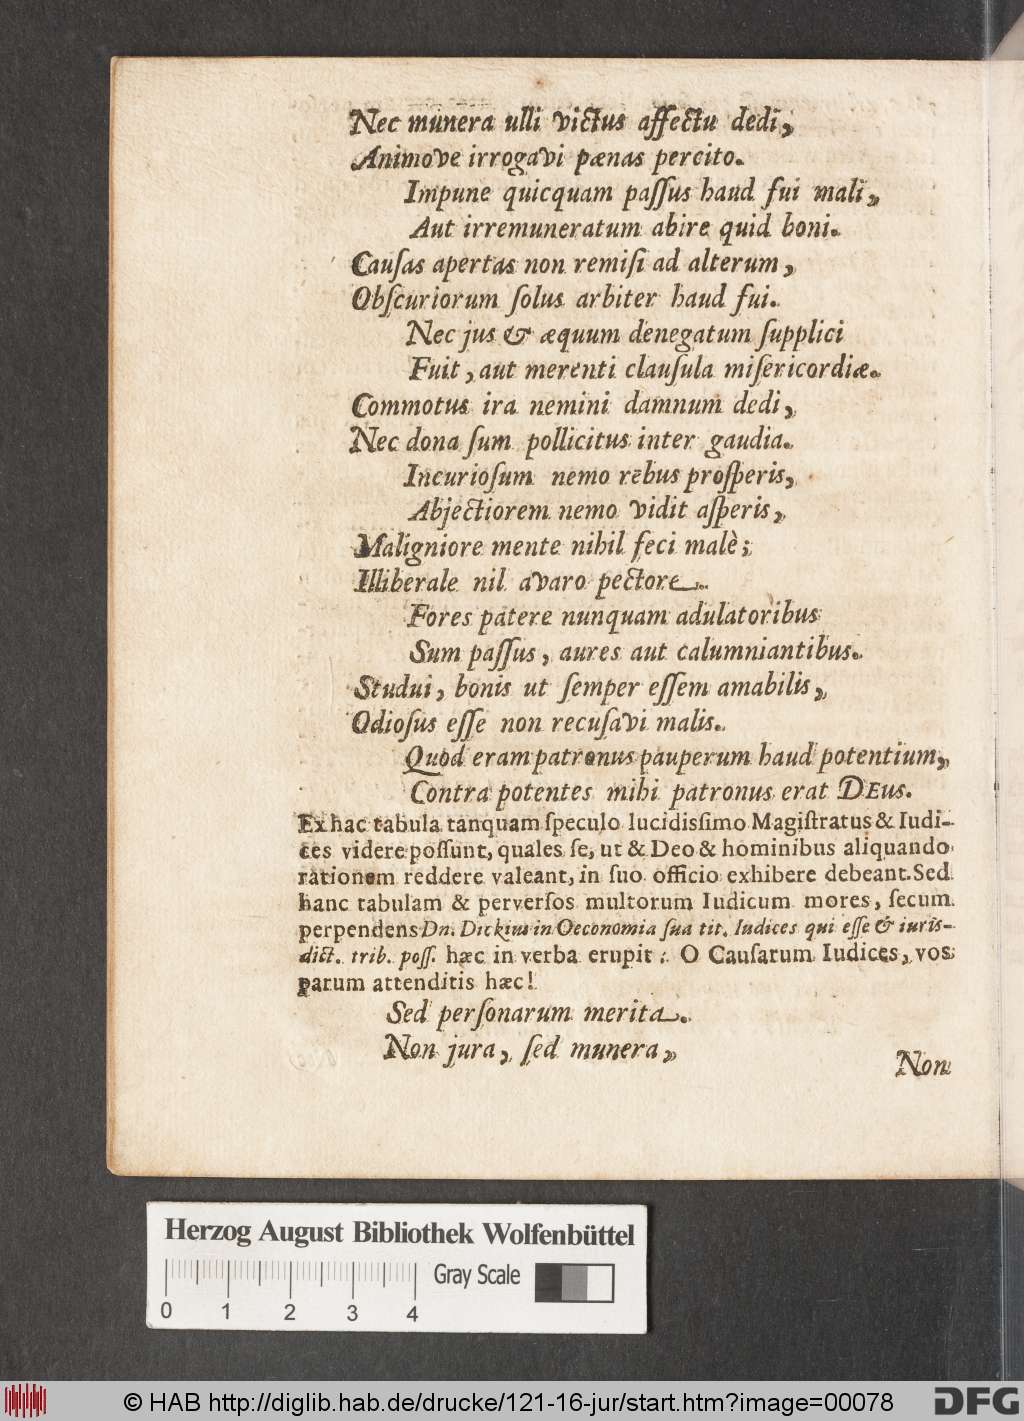 Nec munera ulli victus affectu dedi,
Animove irrogavi pænas percito.
Impune quicquam paſſus haud fui mali,
Aut irremuneratum abire quid boni.
Cauſas apertas non remiſi ad alterum,
Obſcuriorum ſolus arbiter haud fui.
Nec jus & æquum denegatum ſupplici
Fuit, aut merenti clauſula miſericordiæ.
Commotus ira nemini damnum dedi,
Nec dona ſum pollicitus inter gaudia.
Incurioſum nemo rebus proſperis,
Abjectiorem nemo vidit aſperis,
Maligniore mente nihil feci malè;
Illiberale nil avaro pectore.
Fores patere nunquam adulatoribus
Sum paſſus, aures aut calumniantibus.
Studui, bonis ut ſemper eſſem amabilis,
Odioſus eſſe non recuſavi malis.
Quod eram patronus pauperum haud potentium,
Contra potentes mihi patronus erat DEus.
Ex hac tabula tanquam ſpeculo lucidisſimo Magiſtratus & Iudi-
ces videre poſſunt, quales ſe, ut & Deo & hominibus aliquando
rationem reddere valeant, in ſuo officio exhibere debeant. Sed
hanc tabulam & perverſos multorum Iudicum mores, ſecum
perpendens Dn. Dickius in Oeconomia ſua tit. Iudices qui eſſe & iuris-
dict. trib. poſſ. hæc in verba erupit: O Cauſarum Iudices, vos
parum attenditis hæc!
Sed perſonarum merita.
Non jura, ſed munera,
Non
Herzog August Bibliothek Wolfenbüttel
Gray Scale
0 1 2 3 4
© HAB http://diglib.hab.de/drucke/121-16-jur/start.htm?image=00078
DFG